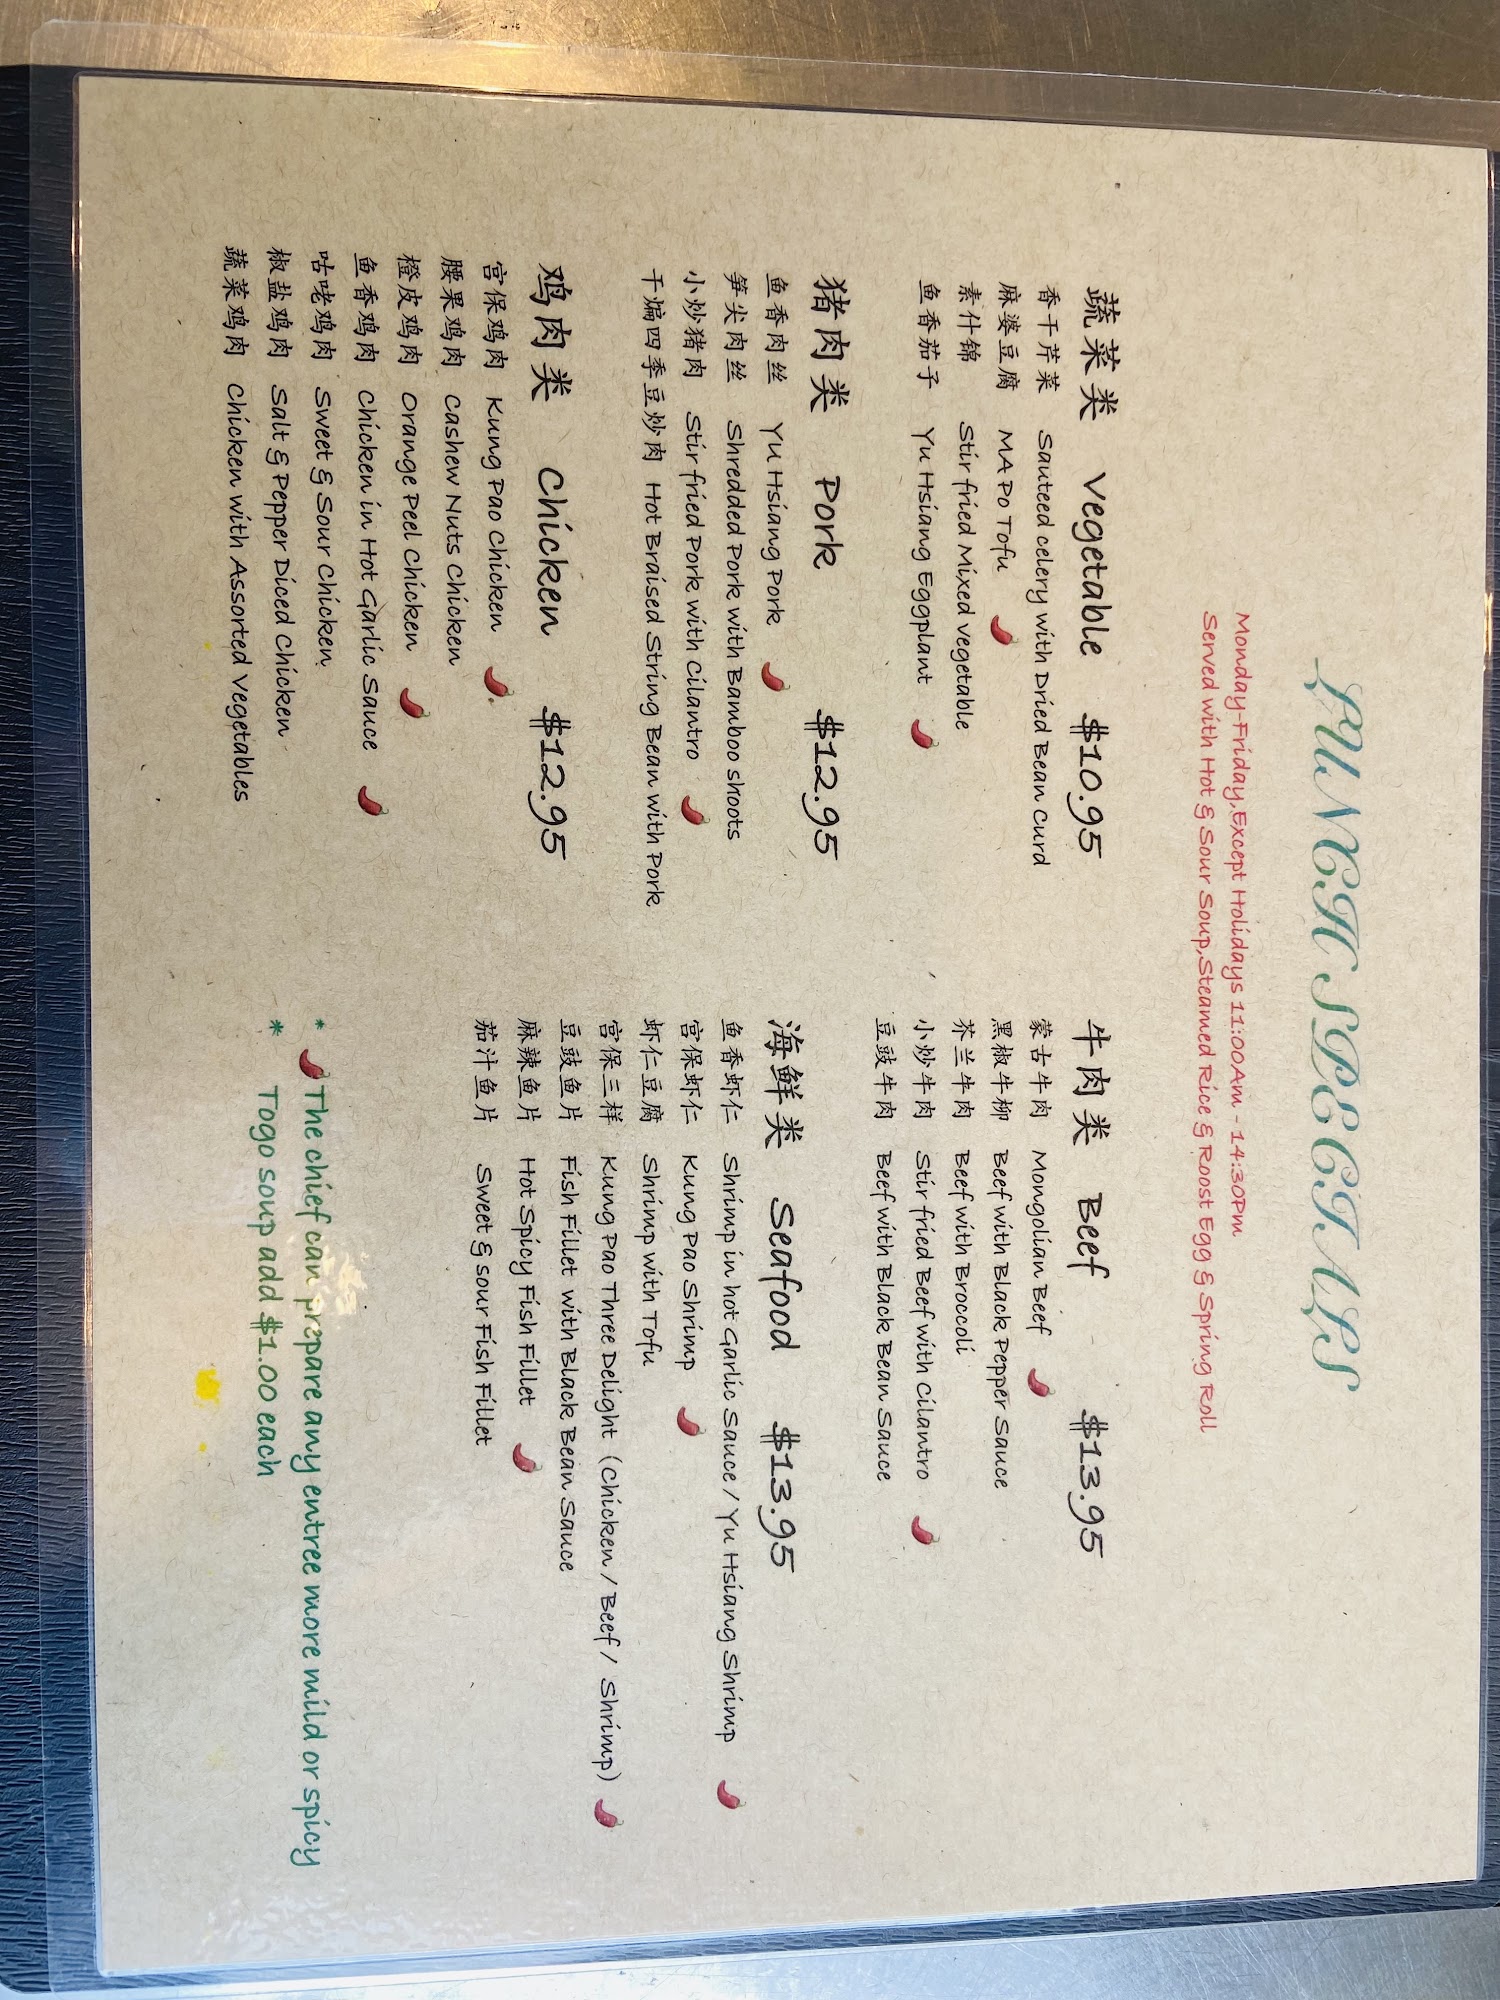 LUNCH SPECIALS
Monday-Friday,Except Holidays 11:00Am - 14:30Pm
Served with Hot & Sour Soup,Steamed Rice & Roost Egg & Spring Roll
蔬菜类 Vegetable $10.95
香干芹菜 Sauteed celery with Dried Bean Curd
麻婆豆腐 MA Po Tofu
素什锦 Stir fried Mixed vegetable
鱼香茄子 Yu Hsiang Eggplant
猪肉类 Pork $12.95
鱼香肉丝 Yu Hsiang Pork
笋尖肉丝 Shredded Pork with Bamboo shoots
小炒猪肉 Stir fried Pork with Cilantro
干煸四季豆炒肉 Hot Braised String Bean with Pork
鸡肉类 Chicken $12.95
宫保鸡肉 Kung Pao Chicken
腰果鸡肉 Cashew Nuts Chicken
橙皮鸡肉 Orange Peel Chicken
鱼香鸡肉 Chicken in Hot Garlic Sauce
咕咾鸡肉 Sweet & Sour Chicken
椒盐鸡肉 Salt & Pepper Diced Chicken
蔬菜鸡肉 Chicken with Assorted Vegetables
牛肉类 Beef $13.95
蒙古牛肉 Mongolian Beef
黑椒牛柳 Beef with Black Pepper Sauce
芥兰牛肉 Beef with Broccoli
小炒牛肉 Stir fried Beef with Cilantro
豆豉牛肉 Beef with Black Bean Sauce
海鲜类 Seafood $13.95
鱼香虾仁 Shrimp in hot Garlic Sauce / Yu Hsiang Shrimp
宫保虾仁 Kung Pao Shrimp
虾仁豆腐 Shrimp with Tofu
宫保三样 Kung Pao Three Delight (Chicken / Beef / Shrimp)
豆豉鱼片 Fish Fillet with Black Bean Sauce
麻辣鱼片 Hot Spicy Fish Fillet
茄汁鱼片 Sweet & sour Fish Fillet
* The chief can prepare any entree more mild or spicy
* Togo soup add $1.00 each